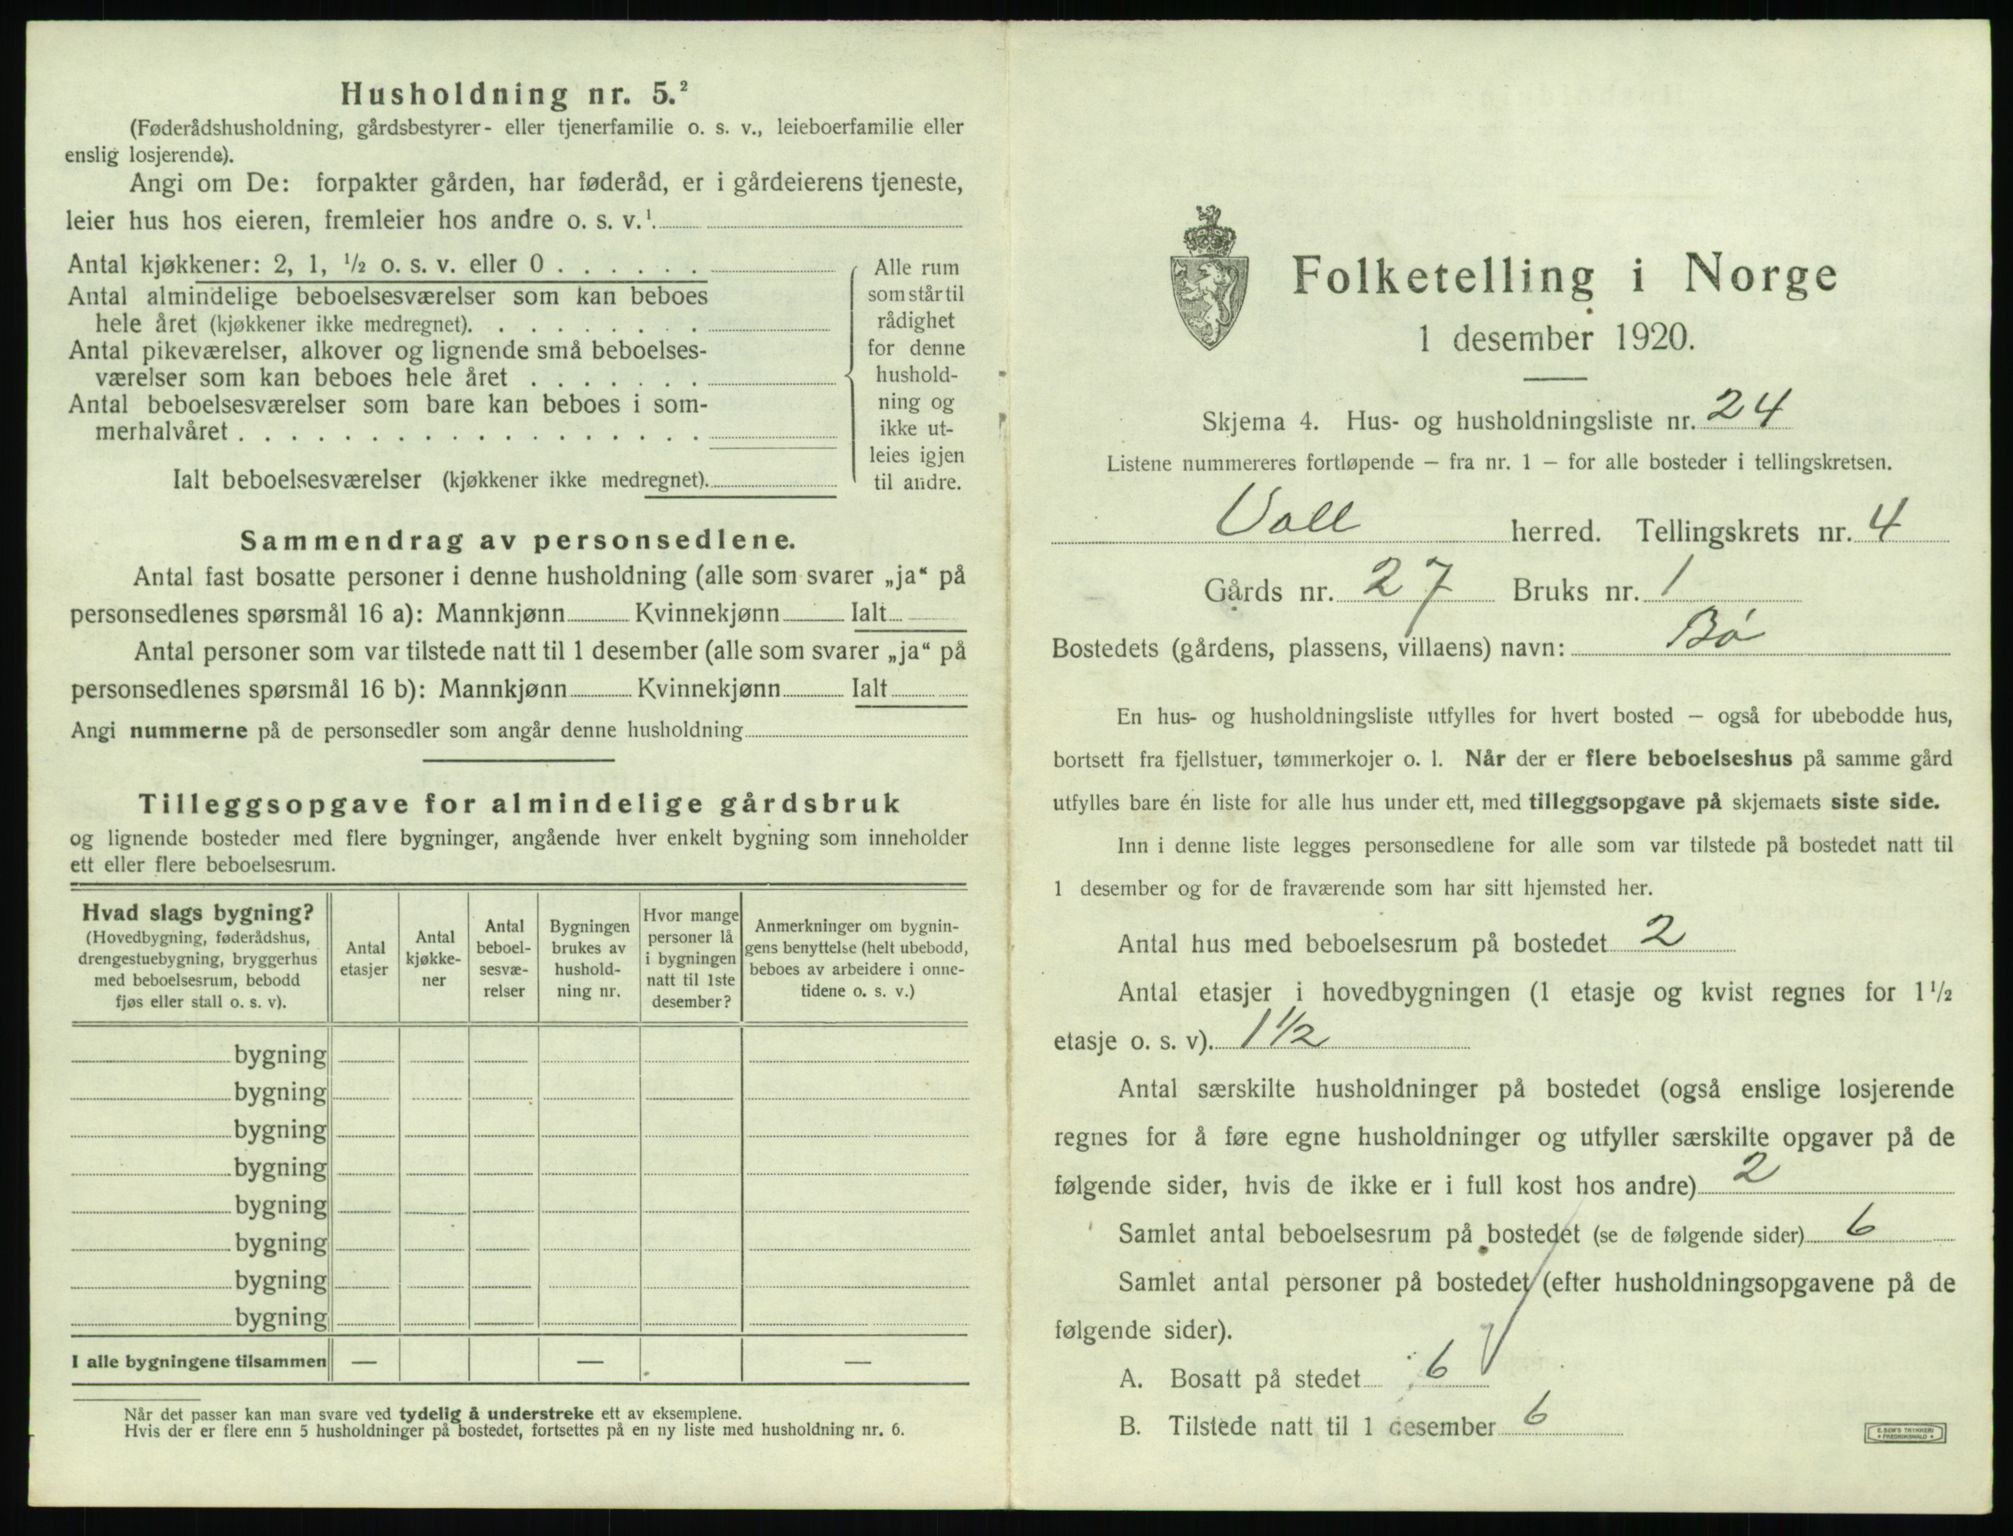 Husholdning nr. 5.²
(Føderådshusholdning, gårdsbestyrer- eller tjenerfamilie o. s. v., leieboerfamilie eller
enslig losjerende).
Angi om De: forpakter gården, har føderåd, er i gårdeierens tjeneste,
leier hus hos eieren, fremleier hos andre o. s. v.¹
Antal kjøkkener: 2, 1, ½ o. s. v. eller 0 . . . . . .
Antal almindelige beboelsesværelser som kan beboes
hele året (kjøkkener ikke medregnet). . . . . . . . .
Antal pikeværelser, alkover og lignende små beboelses-
værelser som kan beboes hele året . . . . . . .
Antal beboelsesværelser som bare kan beboes i som-
merhalvåret . . . . . . . . . . . . . . . . . .
Ialt beboelsesværelser (kjøkkener ikke medregnet).
Alle rum
som står til
rådighet
for denne
hushold-
ning og
ikke ut-
leies igjen
til andre.
Sammendrag av personsedlene.
Antal fast bosatte personer i denne husholdning (alle som svarer „ja“ på
personsedlenes spørsmål 16 a): Mannkjønn Kvinnekjønn Ialt
Antal personer som var tilstede natt til 1 desember (alle som svarer „ja“ på
personsedlenes spørsmål 16 b): Mannkjønn Kvinnekjønn Ialt
Angi nummerne på de personsedler som angår denne husholdning
Tilleggsopgave for almindelige gårdsbruk
og lignende bosteder med flere bygninger, angående hver enkelt bygning som inneholder
ett eller flere beboelsesrum.
Hvad slags bygning?
(Hovedbygning, føderådshus,
drengestuebygning, bryggerhus
med beboelsesrum, bebodd
fjøs eller stall o. s. v).
Antal
etasjer
Antal
kjøkke-
ner
Antal
beboel-
sesvæ-
relser
Bygningen
brukes av
hushold-
ning nr.
Hvor mange
personer lå
i bygningen
natt til 1ste
desember?
Anmerkninger om bygnin-
gens benyttelse (helt ubebodd,
beboes av arbeidere i onne-
tidene o. s. v.)
bygning
bygning
bygning
bygning
bygning
bygning
bygning
bygning
I alle bygningene tilsammen — — —
Når det passer kan man svare ved tydelig å understreke ett av eksemplene.
Hvis der er flere enn 5 husholdninger på bostedet, fortsettes på en ny liste med husholdning nr. 6.
Folketelling i Norge
1 desember 1920.
Skjema 4. Hus- og husholdningsliste nr. 24
Listene nummereres fortløpende – fra nr. 1 – for alle bosteder i tellingskretsen.
Voll herred. Tellingskrets nr. 4
Gårds nr. 27 Bruks nr. 1
Bostedets (gårdens, plassens, villaens) navn: Bø
En hus- og husholdningsliste utfylles for hvert bosted – også for ubebodde hus,
bortsett fra fjellstuer, tømmerkojer o. l. Når der er flere beboelseshus på samme gård
utfylles bare én liste for alle hus under ett, med tilleggsopgave på skjemaets siste side.
Inn i denne liste legges personsedlene for alle som var tilstede på bostedet natt til
1 desember og for de fraværende som har sitt hjemsted her.
Antal hus med beboelsesrum på bostedet 2
Antal etasjer i hovedbygningen (1 etasje og kvist regnes for 1½
etasje o. s. v). 1½
Antal særskilte husholdninger på bostedet (også enslige losjerende
regnes for å føre egne husholdninger og utfyller særskilte opgaver på de
følgende sider, hvis de ikke er i full kost hos andre) 2
Samlet antal beboelsesrum på bostedet (se de følgende sider) 6
Samlet antal personer på bostedet (efter husholdningsopgavene på de
følgende sider).
A. Bosatt på stedet 6
B. Tilstede natt til 1 desember 6